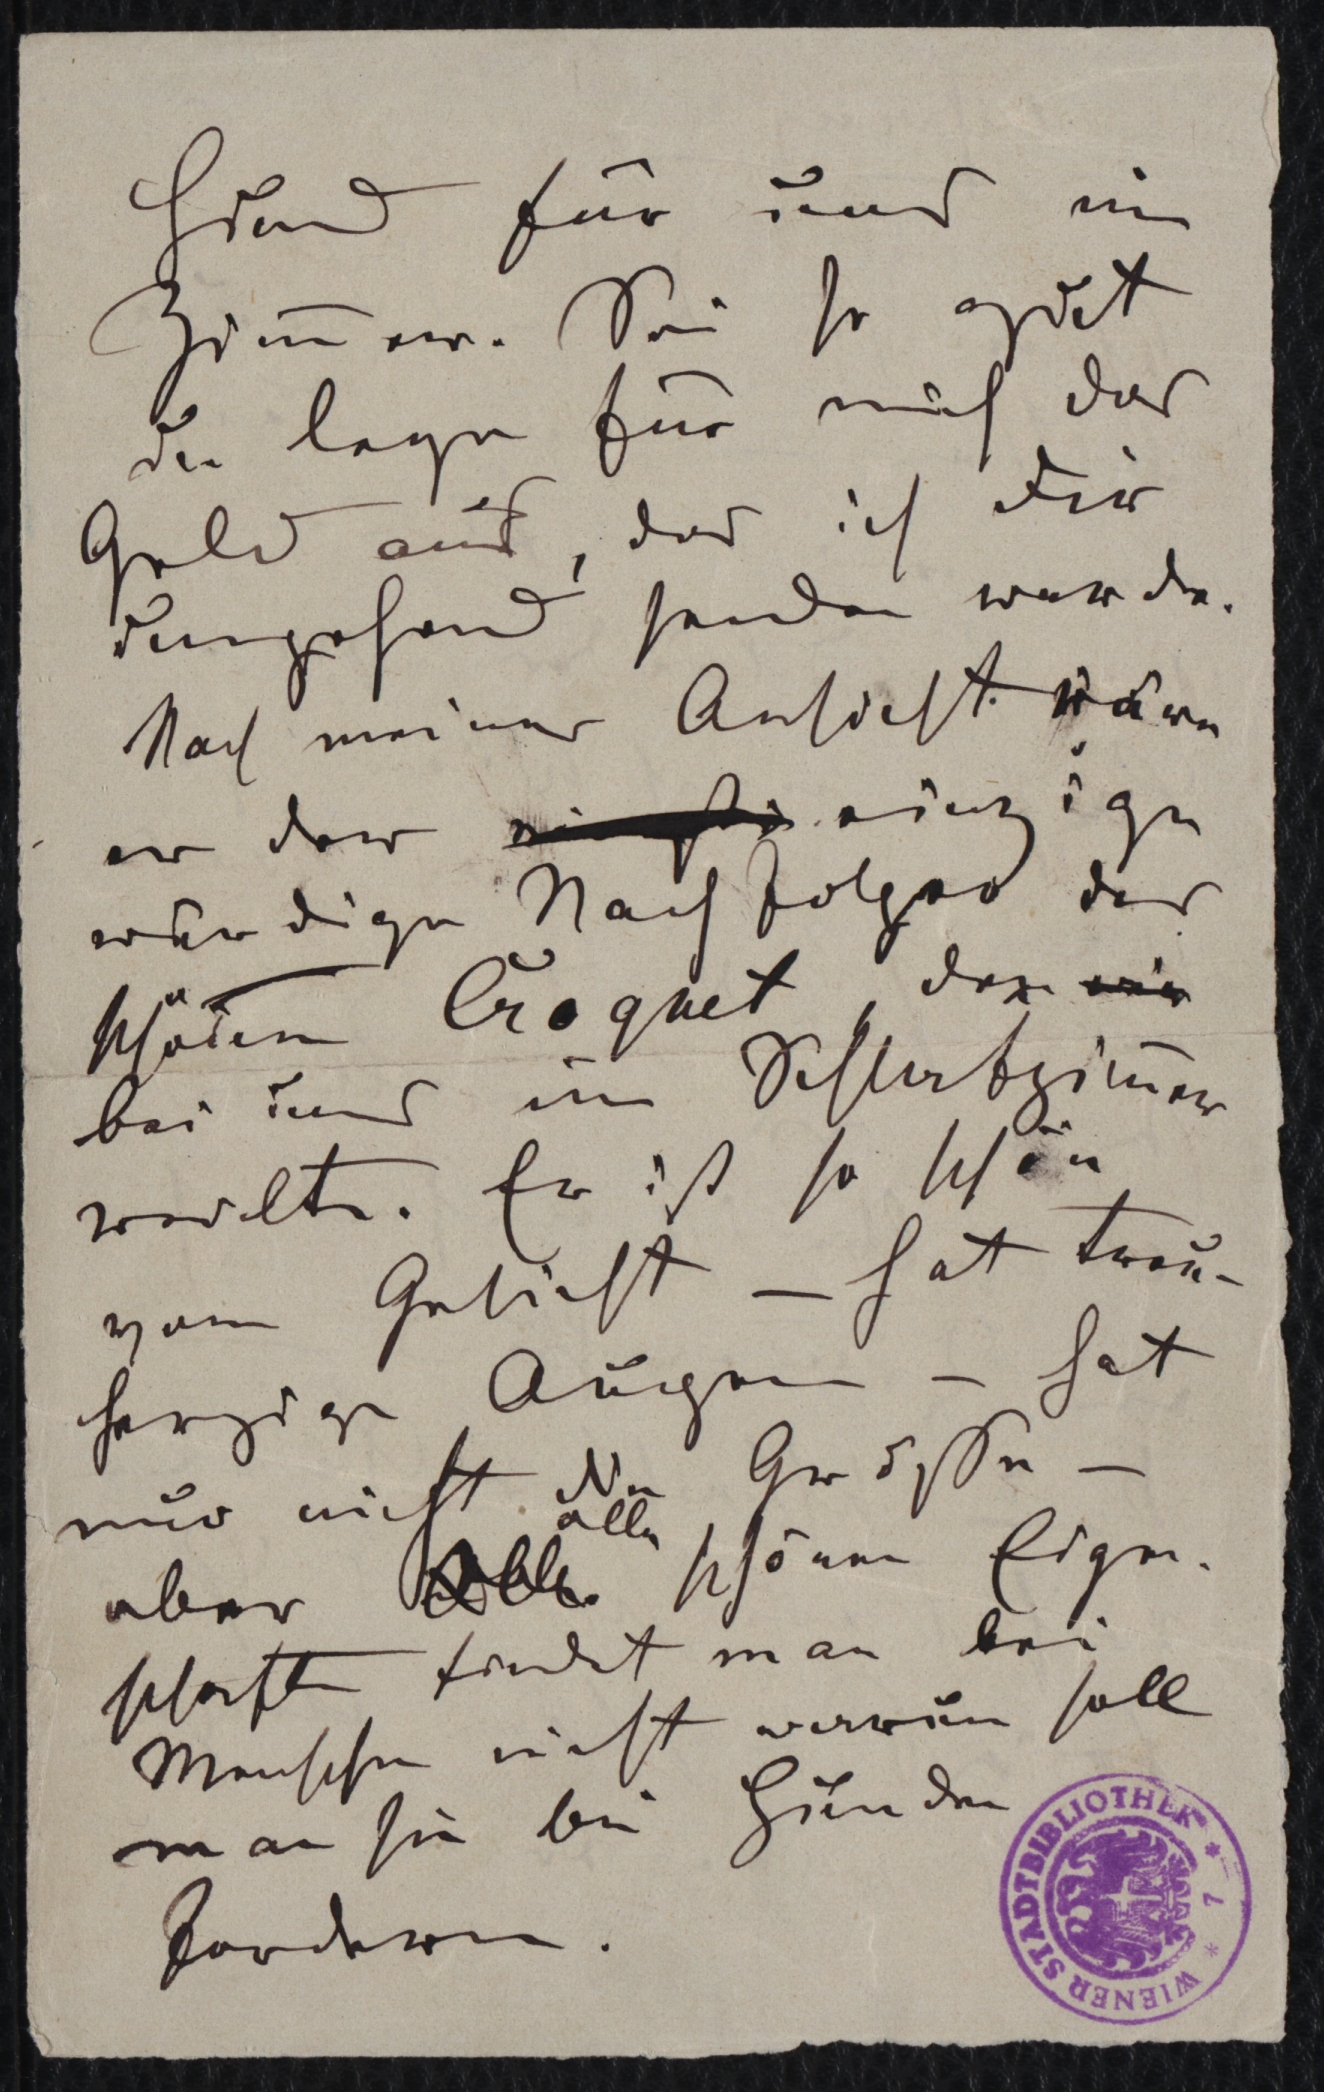 Hund für uns im
Zim̄er. Sei so gut
du lege für mich das
Geld aus, das ich Dir
umgehend senden werde.
Nach meiner Ansicht wäre
er der einzige
würdige Nachfolger des
schönen Croquet, der wir
bei uns im Schlafzim̄er
weilte. Er ist so schön
vom Gesicht – hat treu-
herzige Augen – hat
nur nicht die Grösse –
aber alle schönen Eigen-
schaften findet man bei
Menschen nicht warum soll
man sie bei Hunden
fordern.
WIENER STADTBIBLIOTHEK * 7 *